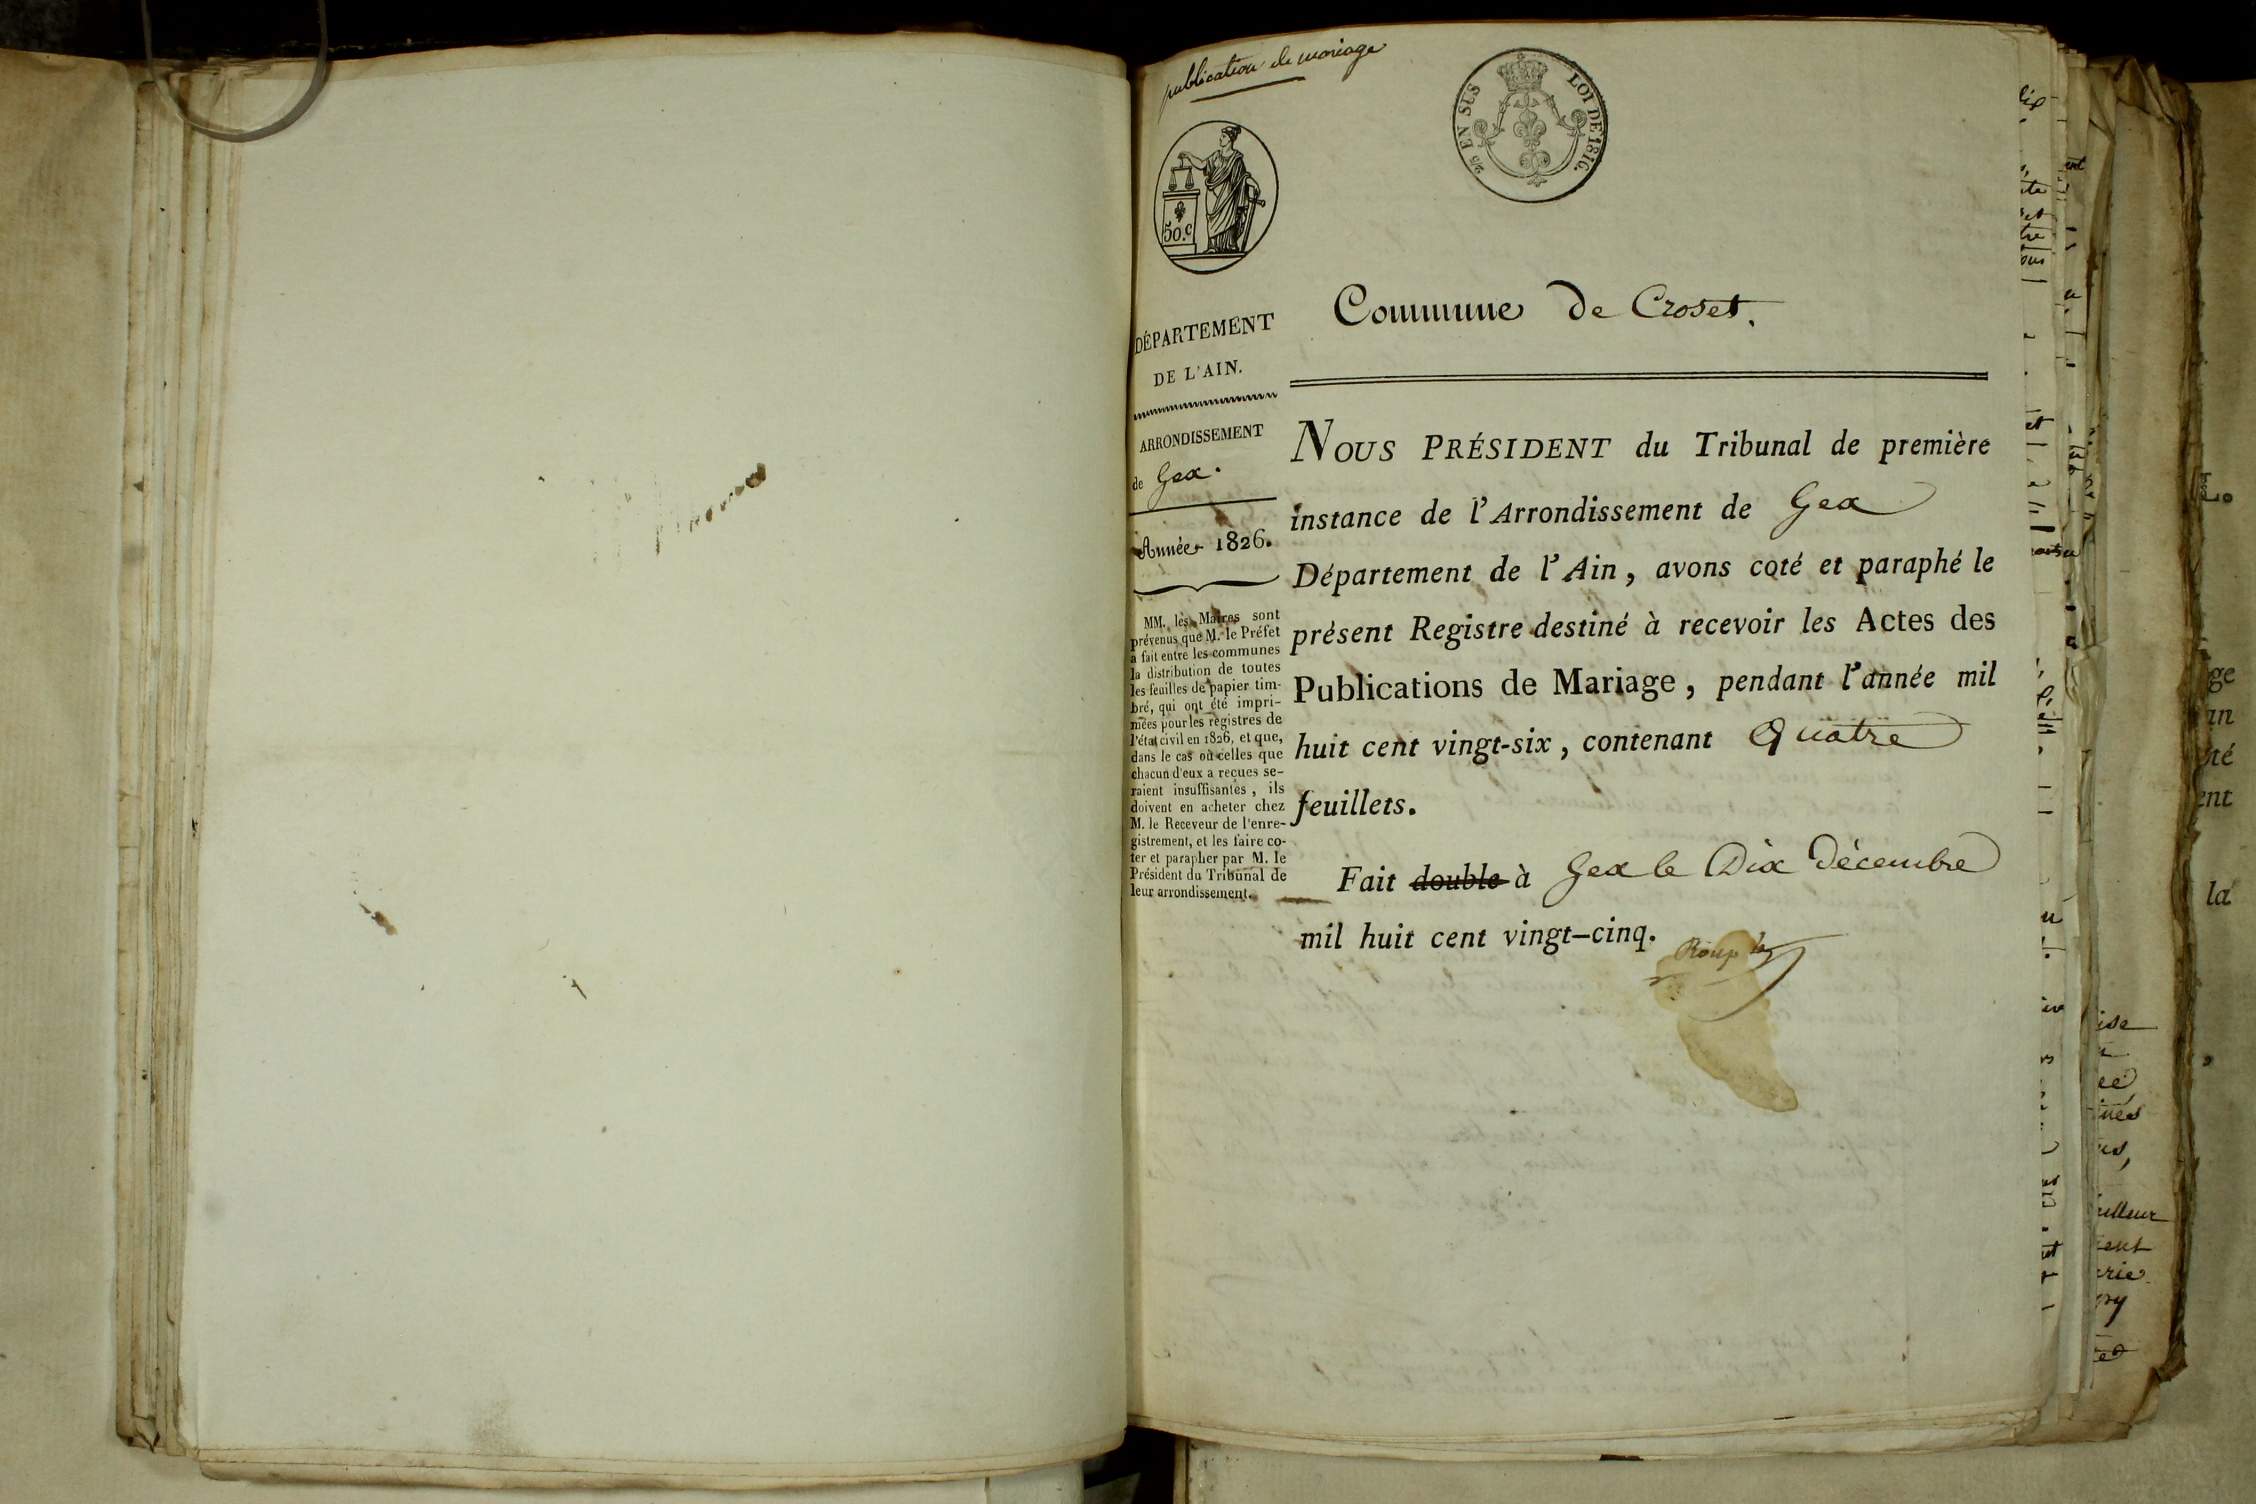 publication de mariage
25 EN SUS
LOI DE 1816.
50.c
Commune de Croset.
DÉPARTEMENT
DE L'AIN.
ARRONDISSEMENT
de Gex.
Année 1826.
MM. les Maires sont
prévenus que M. le Préfet
a fait entre les communes
la distribution de toutes
les feuilles de papier tim-
bré, qui ont été impri-
mées pour les registres de
l'état civil en 1826, et que,
dans le cas où celles que
chacun d'eux a reçues se-
raient insuffisantes, ils
doivent en acheter chez
M. le Receveur de l'enre-
gistrement, et les faire co-
ter et parapher par M. le
Président du Tribunal de
leur arrondissement.
NOUS PRÉSIDENT du Tribunal de première
instance de l'Arrondissement de Gex
Département de l'Ain, avons coté et paraphé le
présent Registre destiné à recevoir les Actes des
Publications de Mariage, pendant l'année mil
huit cent vingt-six, contenant Quatre
feuillets.
Fait double à Gex le Dix Décembre
mil huit cent vingt-cinq.